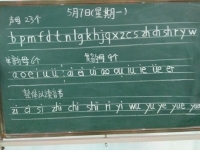 声母 23个
5月7日(星期一)
b p m f d t n l g k h j q x z c s zh ch sh r y w
单韵母6个 复韵母 9个
a o e i u ü ai ei ui ao ou iu ie üe er
整体认读音节
zi ci si zhi chi shi ri yi wu yu ye yue